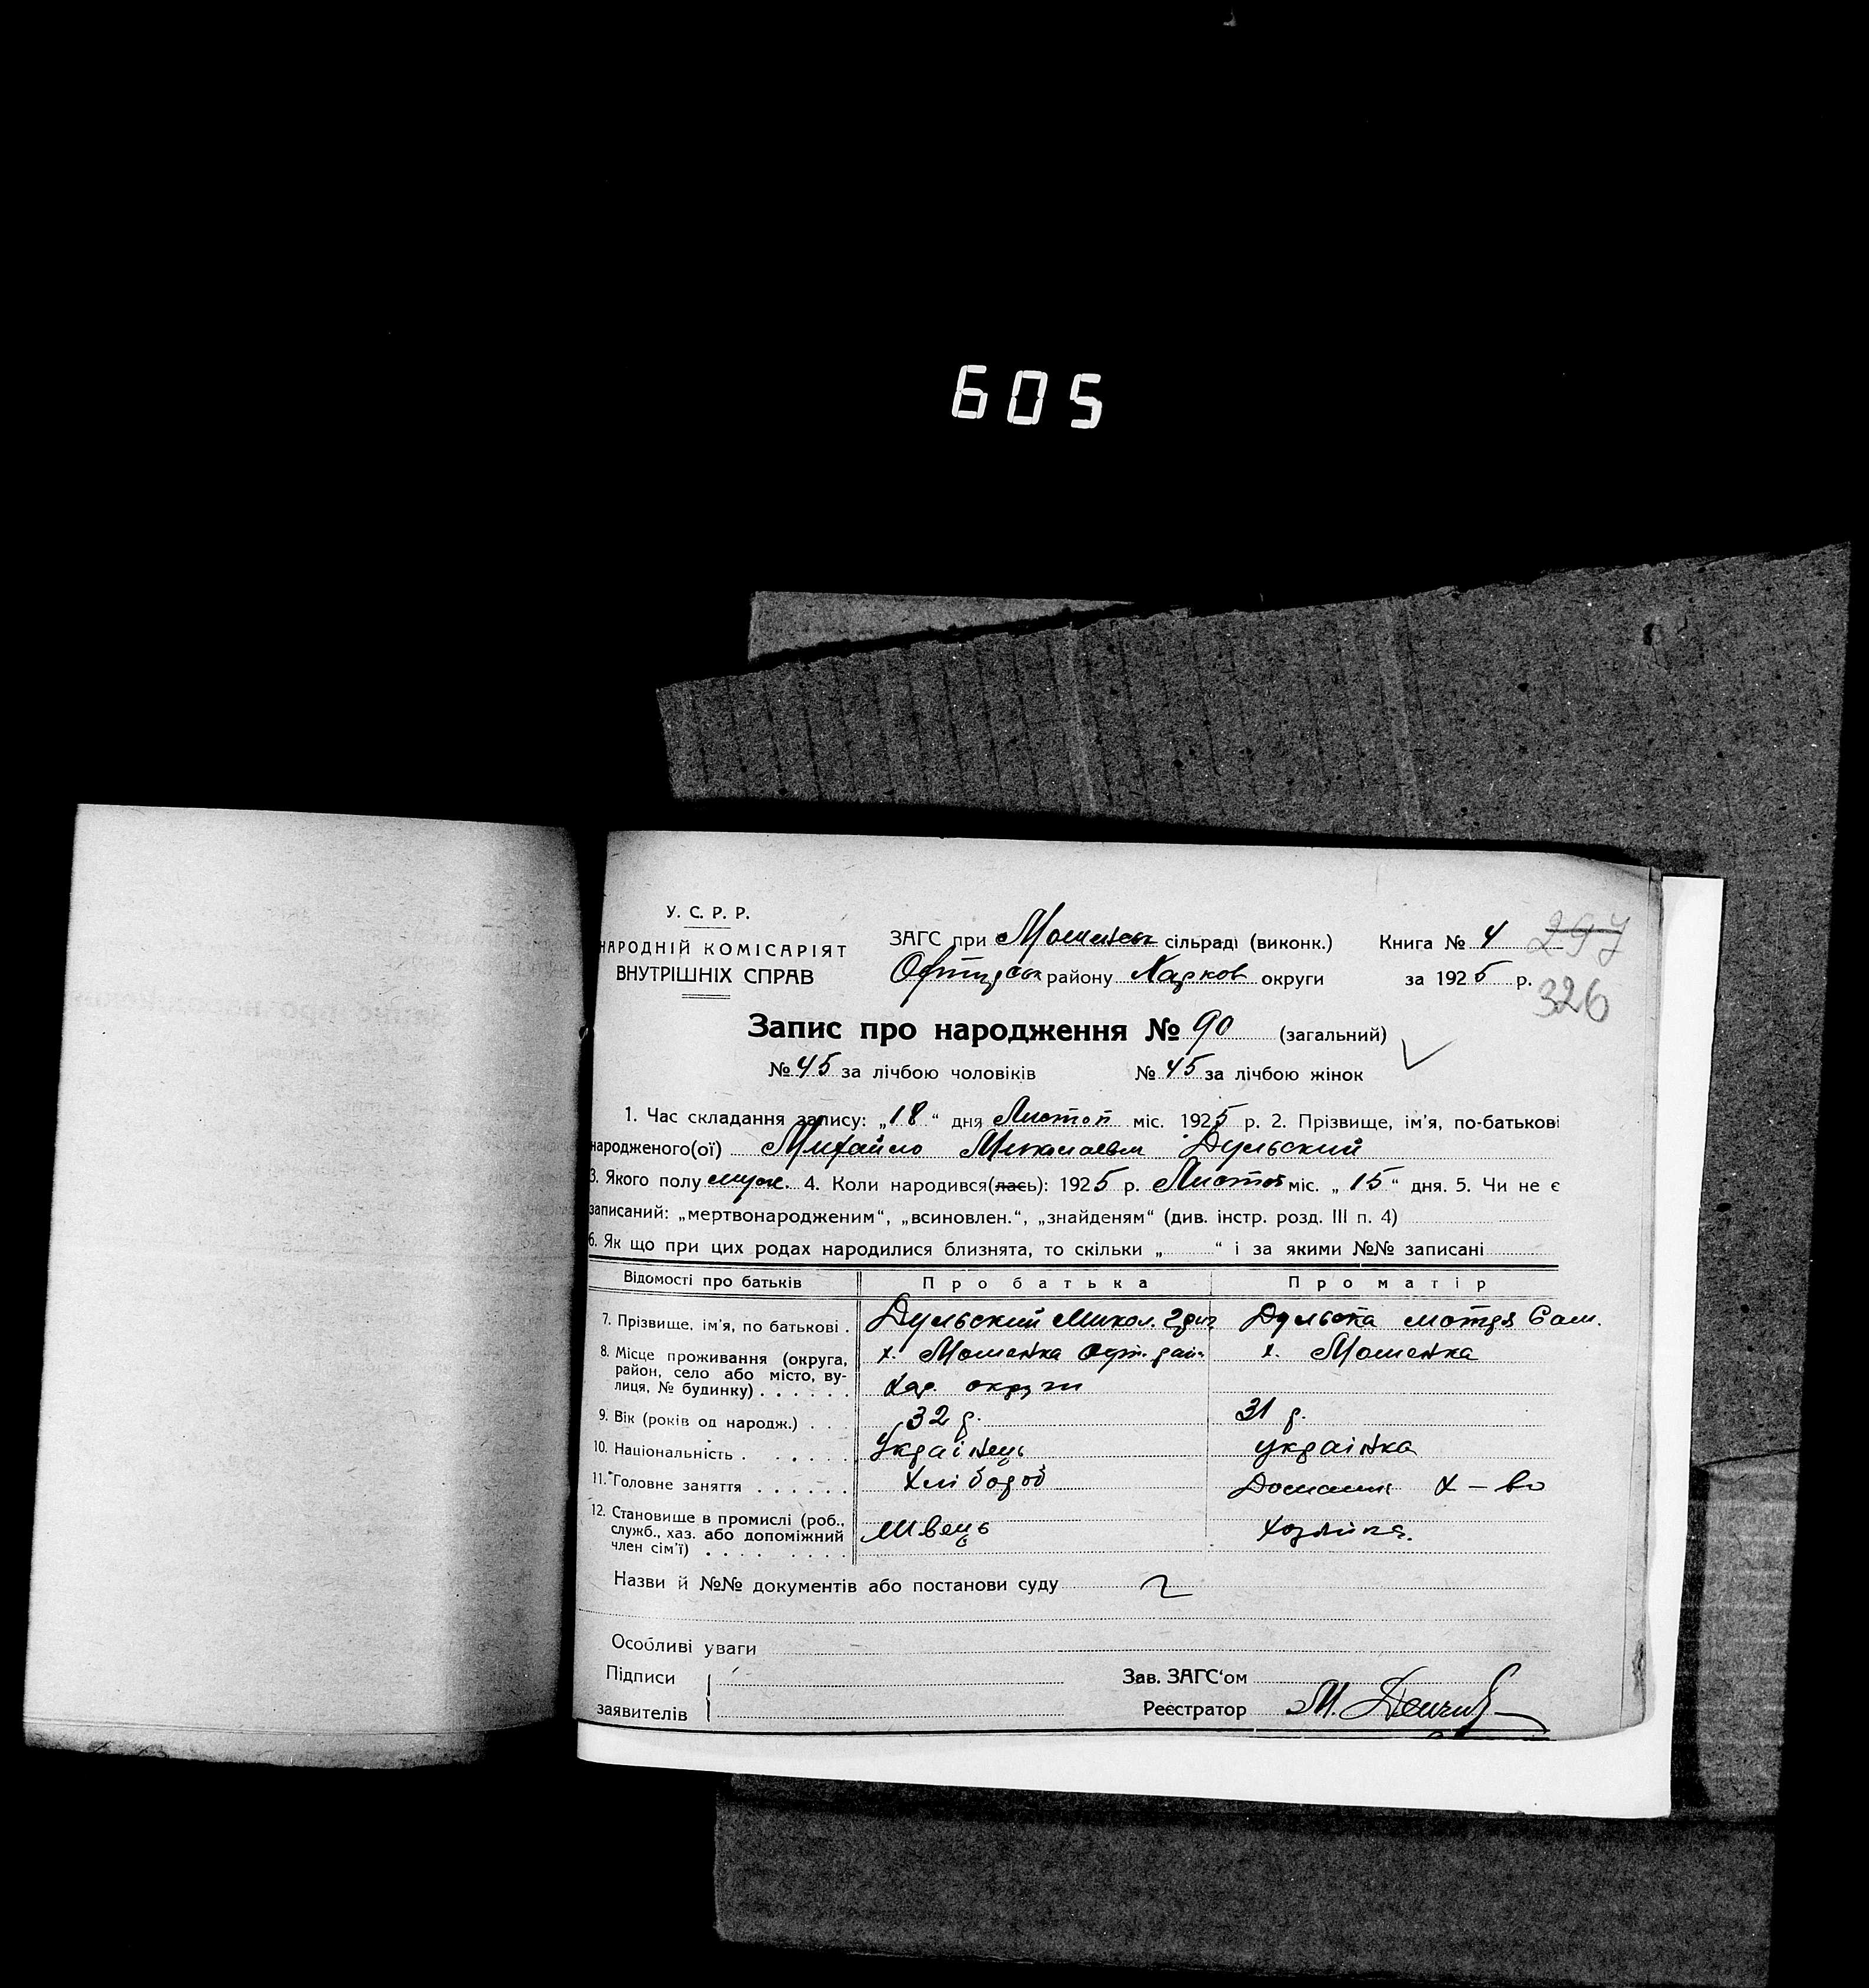 605
У. С. Р. Р.
НАРОДНІЙ КОМІСАРІЯТ
ВНУТРІШНІХ СПРАВ
ЗАГС при сільраді (виконк.) Книга № 4 297
району Харков округи за 1925 р.
326
Запис про народження № 90 (загальний)
№ 45 за лічбою чоловіків № 45 за лічбою жінок
1. Час складання запису: „18“ дня Листоп міс. 1925 р. 2. Прізвище, ім'я, по-батькові
народженого(ої) Михайло Миколаевич Дульский
3. Якого полу муж. 4. Коли народився(лась): 1925 р. Листоп міс. „15“ дня. 5. Чи не є
записаний: „мертвонародженим“, „всиновлен.“, „знайденям“ (див. інстр. розд. III п. 4)
6. Як що при цих родах народилися близнята, то скільки „ “ і за якими №№ записані
Відомості про батьків Про батька Про матір
7. Прізвище, ім'я, по батькові . Дульский Микол. Григ. Дульска мотря Сам.
8. Місце проживання (округа, район, село або місто, вулиця, № будинку) . . . . . .
х. Мошенка рай. х. Мошенка
Хар. округи
9. Вік (років од народж.) . . . 32 р. 31 р.
10. Національність . . . . . . Українець українка
11. Головне заняття . . . . . . Хлібороб Домашн х-во
12. Становище в промислі (роб., служб., хаз. або допоміжний член сім'ї) . . . . . . . .
Швець
Назви й №№ документів або постанови суду
Особливі уваги
Підписи Зав. ЗАГС'ом
заявителів Реєстратор М.